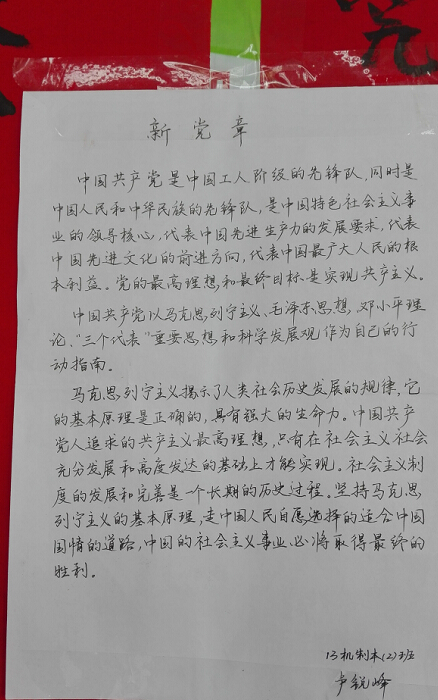 新党章
中国共产党是中国工人阶级的先锋队,同时是
中国人民和中华民族的先锋队,是中国特色社会主义事
业的领导核心,代表中国先进生产力的发展要求,代表
中国先进文化的前进方向,代表中国最广大人民的根
本利益。党的最高理想和最终目标是实现共产主义。
中国共产党以马克思列宁主义、毛泽东思想、邓小平理
论、"三个代表"重要思想和科学发展观作为自己的行
动指南。
马克思列宁主义揭示了人类社会历史发展的规律,它
的基本原理是正确的,具有强大的生命力。中国共产
党人追求的共产主义最高理想,只有在社会主义社会
充分发展和高度发达的基础上才能实现。社会主义制
度的发展和完善是一个长期的历史过程。坚持马克思
列宁主义的基本原理,走中国人民自愿选择的适合中国
国情的道路,中国的社会主义事业必将取得最终的
胜利。
13机制本(2)班
卢锐峰